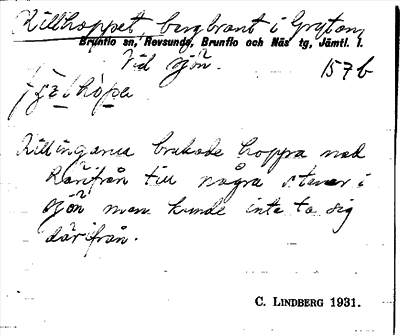 Killhoppet, bergbrant i Grytom,
Brunflo sn, Revsunds, Brunflo och Näs tg, Jämtl. l.
Vid sjön. 157b
Killingarna brukade hoppa ned
härifrån till några stenar i
sjön men kunde inte ta sig
därifrån.
C. LINDBERG 1931.